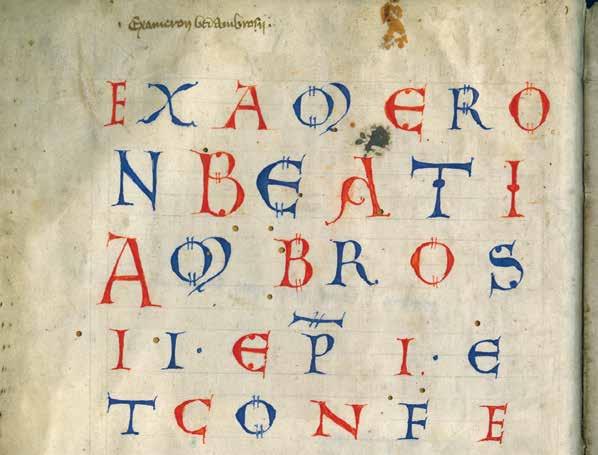 Exameron bti ambrosij.
EXAMERO
NBEATI
AMBROS
II·EP̄I·E
TCONFE